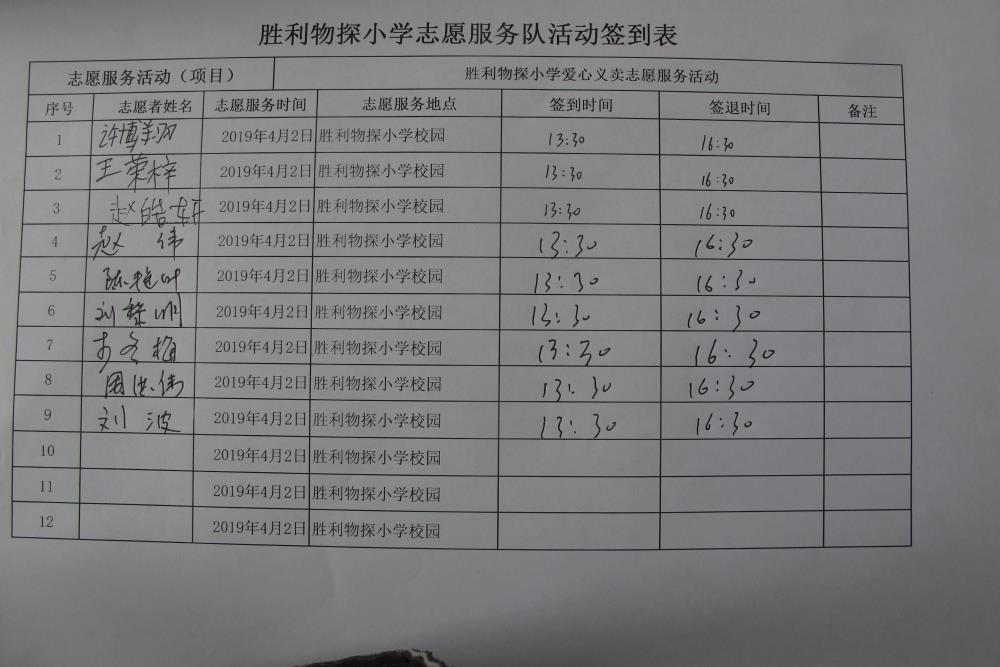 胜利物探小学志愿服务队活动签到表
志愿服务活动（项目） 胜利物探小学爱心义卖志愿服务活动
序号 志愿者姓名 志愿服务时间 志愿服务地点 签到时间 签退时间 备注
1 许博翔 2019年4月2日 胜利物探小学校园 13:30 16:30
2 王荣梓 2019年4月2日 胜利物探小学校园 13:30 16:30
3 赵皓妍 2019年4月2日 胜利物探小学校园 13:30 16:30
4 赵 伟 2019年4月2日 胜利物探小学校园 13:30 16:30
5 2019年4月2日 胜利物探小学校园 13:30 16:30
6 刘 2019年4月2日 胜利物探小学校园 13:30 16:30
7 李冬梅 2019年4月2日 胜利物探小学校园 13:30 16:30
8 周洪伟 2019年4月2日 胜利物探小学校园 13:30 16:30
9 刘 波 2019年4月2日 胜利物探小学校园 13:30 16:30
10 2019年4月2日 胜利物探小学校园
11 2019年4月2日 胜利物探小学校园
12 2019年4月2日 胜利物探小学校园